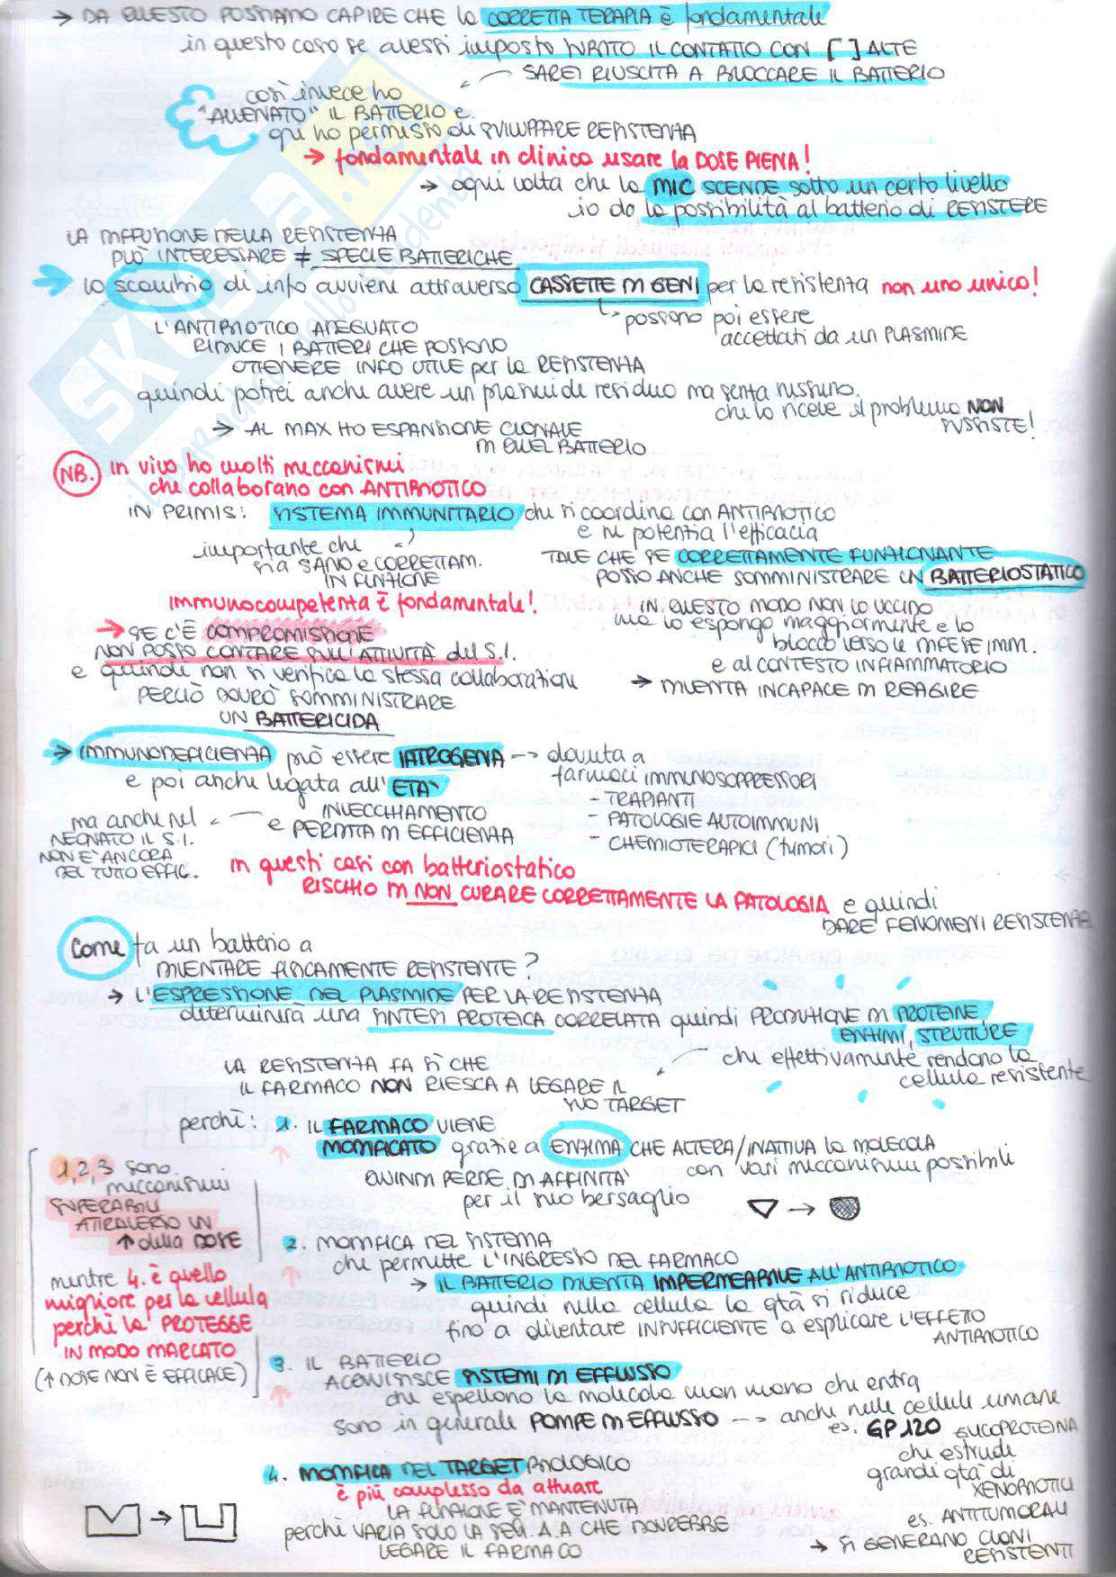 → DA QUESTO POSSIAMO CAPIRE CHE la CORRETTA TERAPIA è fondamentale
in questo caso se avessi imposto SUBITO IL CONTATTO CON [ ] ALTE
SAREI RIUSCITA A BLOCCARE IL BATTERIO
così invece ho
"ALLENATO" IL BATTERIO e
gli ho permesso di SVILUPPARE RESISTENZA
→ fondamentale in clinica usare la DOSE PIENA!
→ ogni volta che la MIC SCENDE sotto un certo livello
io do la possibilità al batterio di RESISTERE
LA DIFFUSIONE DELLA RESISTENZA
PUÒ INTERESSARE ≠ SPECIE BATTERICHE
→ lo scambio di info avviene attraverso CASSETTE DI GENI per la resistenza non uno unico!
possono poi essere
accettati da un PLASMIDE
L'ANTIBIOTICO ADEGUATO
RIDUCE I BATTERI CHE POSSONO
OTTENERE INFO UTILE per la RESISTENZA
quindi potrei anche avere un plasmide residuo ma senza nessuno
che lo riceve il problema NON
SUSSISTE!
→ AL MAX HO ESPANSIONE CLONALE
DI QUEL BATTERIO
NB. in vivo ho molti meccanismi
che collaborano con ANTIBIOTICO
IN PRIMIS: SISTEMA IMMUNITARIO che si coordina con ANTIBIOTICO
e ne potenzia l'efficacia
importante che
sia SANO e CORRETTAM.
IN FUNZIONE
TALE CHE SE CORRETTAMENTE FUNZIONANTE
POSSO ANCHE SOMMINISTRARE UN BATTERIOSTATICO
immunocompetenza è fondamentale!
IN QUESTO MODO NON LO UCCIDO
ma lo espongo maggiormente e lo
blocco verso le DIFESE IMM.
e al CONTESTO INFIAMMATORIO
→ DIVENTA INCAPACE DI REAGIRE
→ SE C'È COMPROMISSIONE
NON POSSO CONTARE SULL'ATTIVITÀ del S.I.
e quindi non si verifica la stessa collaborazione
PERCIÒ DOVRÒ SOMMINISTRARE
UN BATTERICIDA
→ IMMUNODEFICIENZA può essere IATROGENA --> dovuta a
farmaci IMMUNOSOPPRESSORI
- TRAPIANTI
- PATOLOGIE AUTOIMMUNI
- CHEMIOTERAPICI (tumori)
e poi anche legata all'ETÀ
INVECCHIAMENTO
e PERDITA DI EFFICIENZA
ma anche nel
NEONATO IL S.I.
NON È ANCORA
DEL TUTTO EFFIC.
in questi casi con batteriostatico
RISCHIO DI NON CURARE CORRETTAMENTE LA PATOLOGIA e quindi
DARE FENOMENI RESISTENZA
Come fa un batterio a
DIVENTARE FISICAMENTE RESISTENTE?
→ L'ESPRESSIONE DEL PLASMIDE PER LA RESISTENZA
determinerà una SINTESI PROTEICA CORRELATA quindi PRODUZIONE DI PROTEINE,
ENZIMI, STRUTTURE
che effettivamente rendono la
cellula resistente
LA RESISTENZA FA SÌ CHE
IL FARMACO NON RIESCA A LEGARE IL
SUO TARGET
perché: 1. IL FARMACO VIENE
MODIFICATO grazie a ENZIMA CHE ALTERA/INATTIVA la MOLECOLA
con vari meccanismi possibili
QUINDI PERDE DI AFFINITÀ
per il suo bersaglio
→
1,2,3 sono
meccanismi
SUPERABILI
ATTRAVERSO UN
↑ della DOSE
mentre 4. è quello
migliore per la cellula
perché la PROTEGGE
IN MODO MARCATO
(↑ DOSE NON È EFFICACE)
2. MODIFICA DEL SISTEMA
che permette L'INGRESSO DEL FARMACO
→ IL BATTERIO DIVENTA IMPERMEABILE ALL'ANTIBIOTICO
quindi nella cellula la qtà si riduce
fino a diventare INSUFFICIENTE a esplicare L'EFFETTO
ANTIBIOTICO
3. IL BATTERIO
ACQUISISCE SISTEMI DI EFFLUSSO
che espellono la molecola man mano che entra
sono in generale POMPE DI EFFLUSSO --> anche nelle cellule umane
es. GP120 GLICOPROTEINA
che estrude
grandi qtà di
XENOBIOTICI
es. ANTITUMORALI
→ SI GENERANO CLONI
RESISTENTI
4. MODIFICA DEL TARGET BIOLOGICO
è più complesso da attuare
LA FUNZIONE È MANTENUTA
perché VARIA SOLO LA SEQ. A.A CHE DOVREBBE
LEGARE IL FARMACO
→